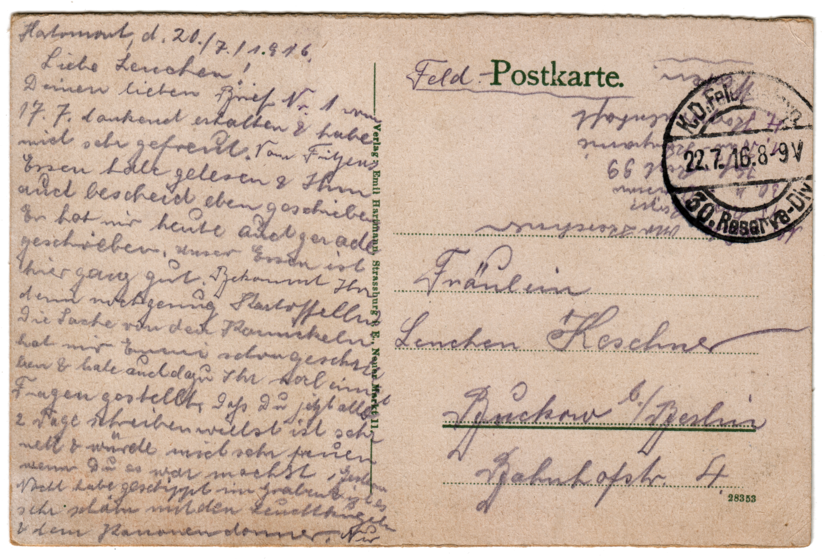 Hartomont, d. 20./7./1916.
Liebe Lenchen!
Deinen lieben Brief Nr. 1 vom
17.7. dankend erhalten & habe
mich sehr gefreut. Von Fritzens
Essen habe gelesen & Ihm
auch bescheid eben geschrieben
Er hat mir heute auch gerade
geschrieben, unser Essen ist
hier ganz gut. Bekommt Ihr
denn noch genug Kartoffeln
Die Sache von den Kannickeln
hat mir Emmi schon geschrie
ben & habe auch dazu Ihr
Fragen gestellt. Daß Du jetzt alle
2 Tage schreiben willst ist sehr
nett & würde mich sehr freuen
wenn Du es war machst, Gestern
Nacht habe geschippt im Graben
sehr schön mit den Leuchtkugeln
& dem Kanonendonner. Nur
Verlag: Emil Hartmann, Strassburg i. E., Neuer Markt 11
Feld-Postkarte.
K.D. Feld
22.7.16. 8-9V
30. Reserve-Div
99
Fräulein
Lenchen Keschner
Buckow b/Berlin
Bahnhofstr. 4.
28353